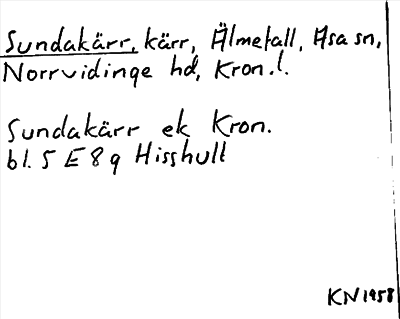 Sundakärr, kärr, Älmefall, Asa sn,
Norrvidinge hd, Kron. l.
Sundakärr ek Kron.
bl. 5 E 8 g Hisshult
KN 1958